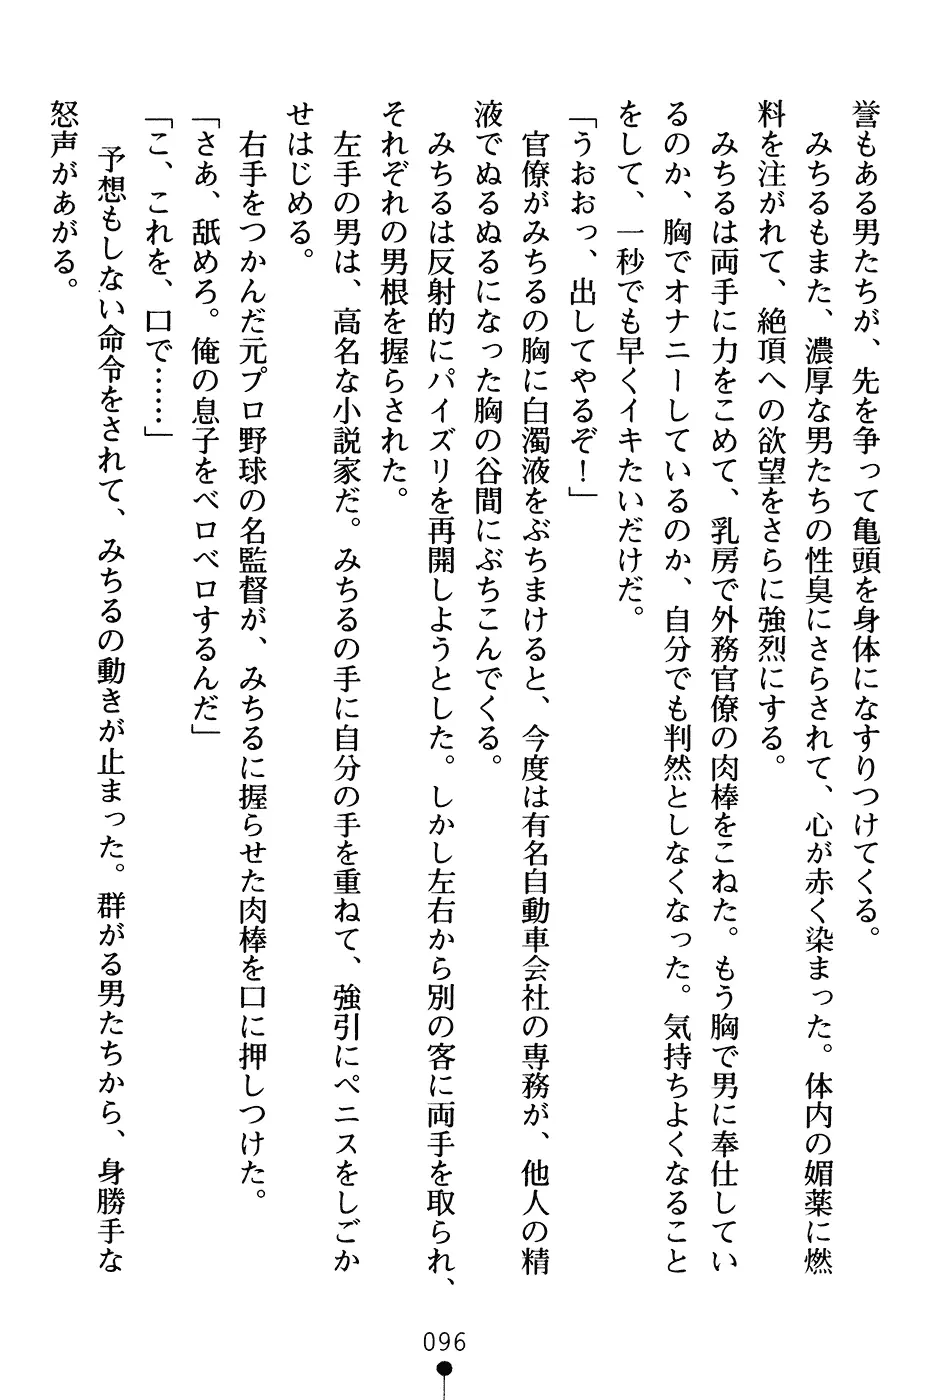 誉もある男たちが、先を争って亀頭を身体になすりつけてくる。
みちるもまた、濃厚な男たちの性臭にさらされて、心が赤く染まった。体内の媚薬に燃
料を注がれて、絶頂への欲望をさらに強烈にする。
みちるは両手に力をこめて、乳房で外務官僚の肉棒をこねた。もう胸で男に奉仕してい
るのか、胸でオナニーしているのか、自分でも判然としなくなった。気持ちよくなること
をして、一秒でも早くイキたいだけだ。
「うおおっ、出してやるぞ！」
官僚がみちるの胸に白濁液をぶちまけると、今度は有名自動車会社の専務が、他人の精
液でぬるぬるになった胸の谷間にぶちこんでくる。
みちるは反射的にパイズリを再開しようとした。しかし左右から別の客に両手を取られ、
それぞれの男根を握らされた。
左手の男は、高名な小説家だ。みちるの手に自分の手を重ねて、強引にペニスをしごか
せはじめる。
右手をつかんだ元プロ野球の名監督が、みちるに握らせた肉棒を口に押しつけた。
「さあ、舐めろ。俺の息子をベロベロするんだ」
「こ、これを、口で……」
予想もしない命令をされて、みちるの動きが止まった。群がる男たちから、身勝手な
怒声があがる。
096